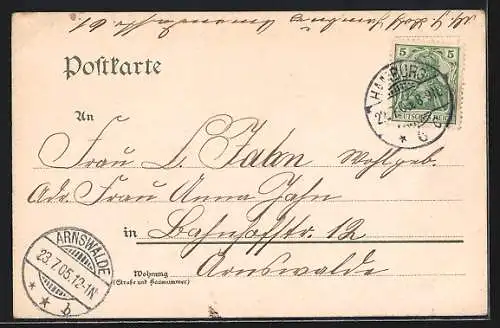 Postkarte
5
5
DEUTSCHES REICH
HAMBURG
An
Frau L. Jahn Wohlgeb.
Adr. Frau Anna Jahn
in Bahnhofstr. 12
Arnswalde
Wohnung
(Straße und Hausnummer)
ARNSWALDE
23.7.05.12-1N
* * b